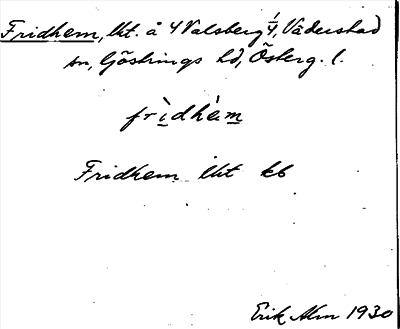 Fridhem, lht. å 4 Valsberg 1/4, Väderstad
sn, Göstrings hd, Österg. l.
frìdhèm
Fridhem lht kb
Erik Alm 1930